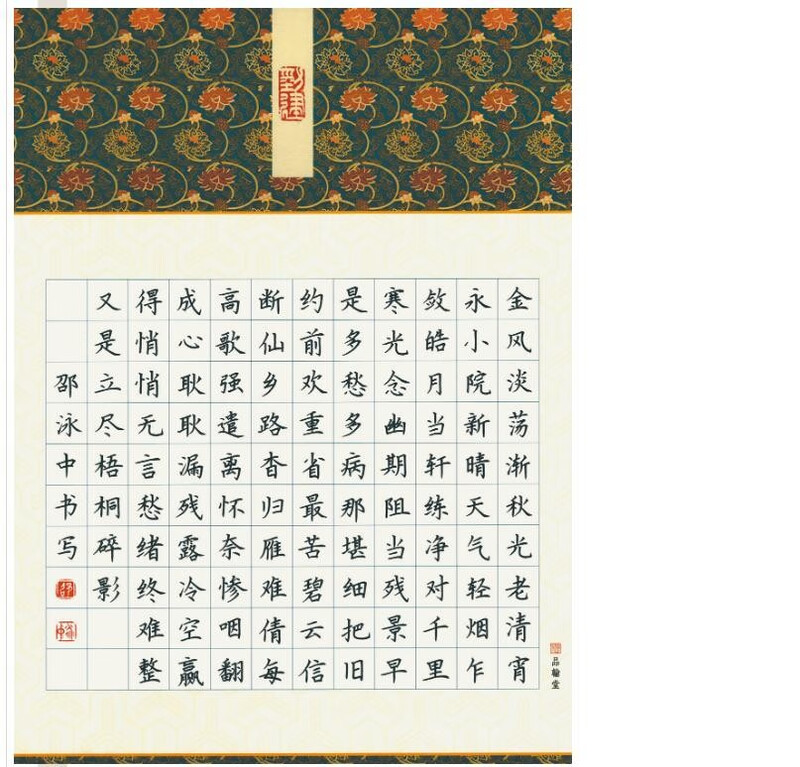 金风淡荡渐秋光老清宵
永小院新晴天气轻烟乍
敛皓月当轩练净对千里
寒光念幽期阻当残景早
是多愁多病那堪细把旧
约前欢重省最苦碧云信
断仙乡路杳归雁难倩每
高歌强遣离怀奈惨咽翻
成心耿耿漏残露冷空赢
得悄悄无言愁绪终难整
又是立尽梧桐碎影
邵泳中书写
品翰堂